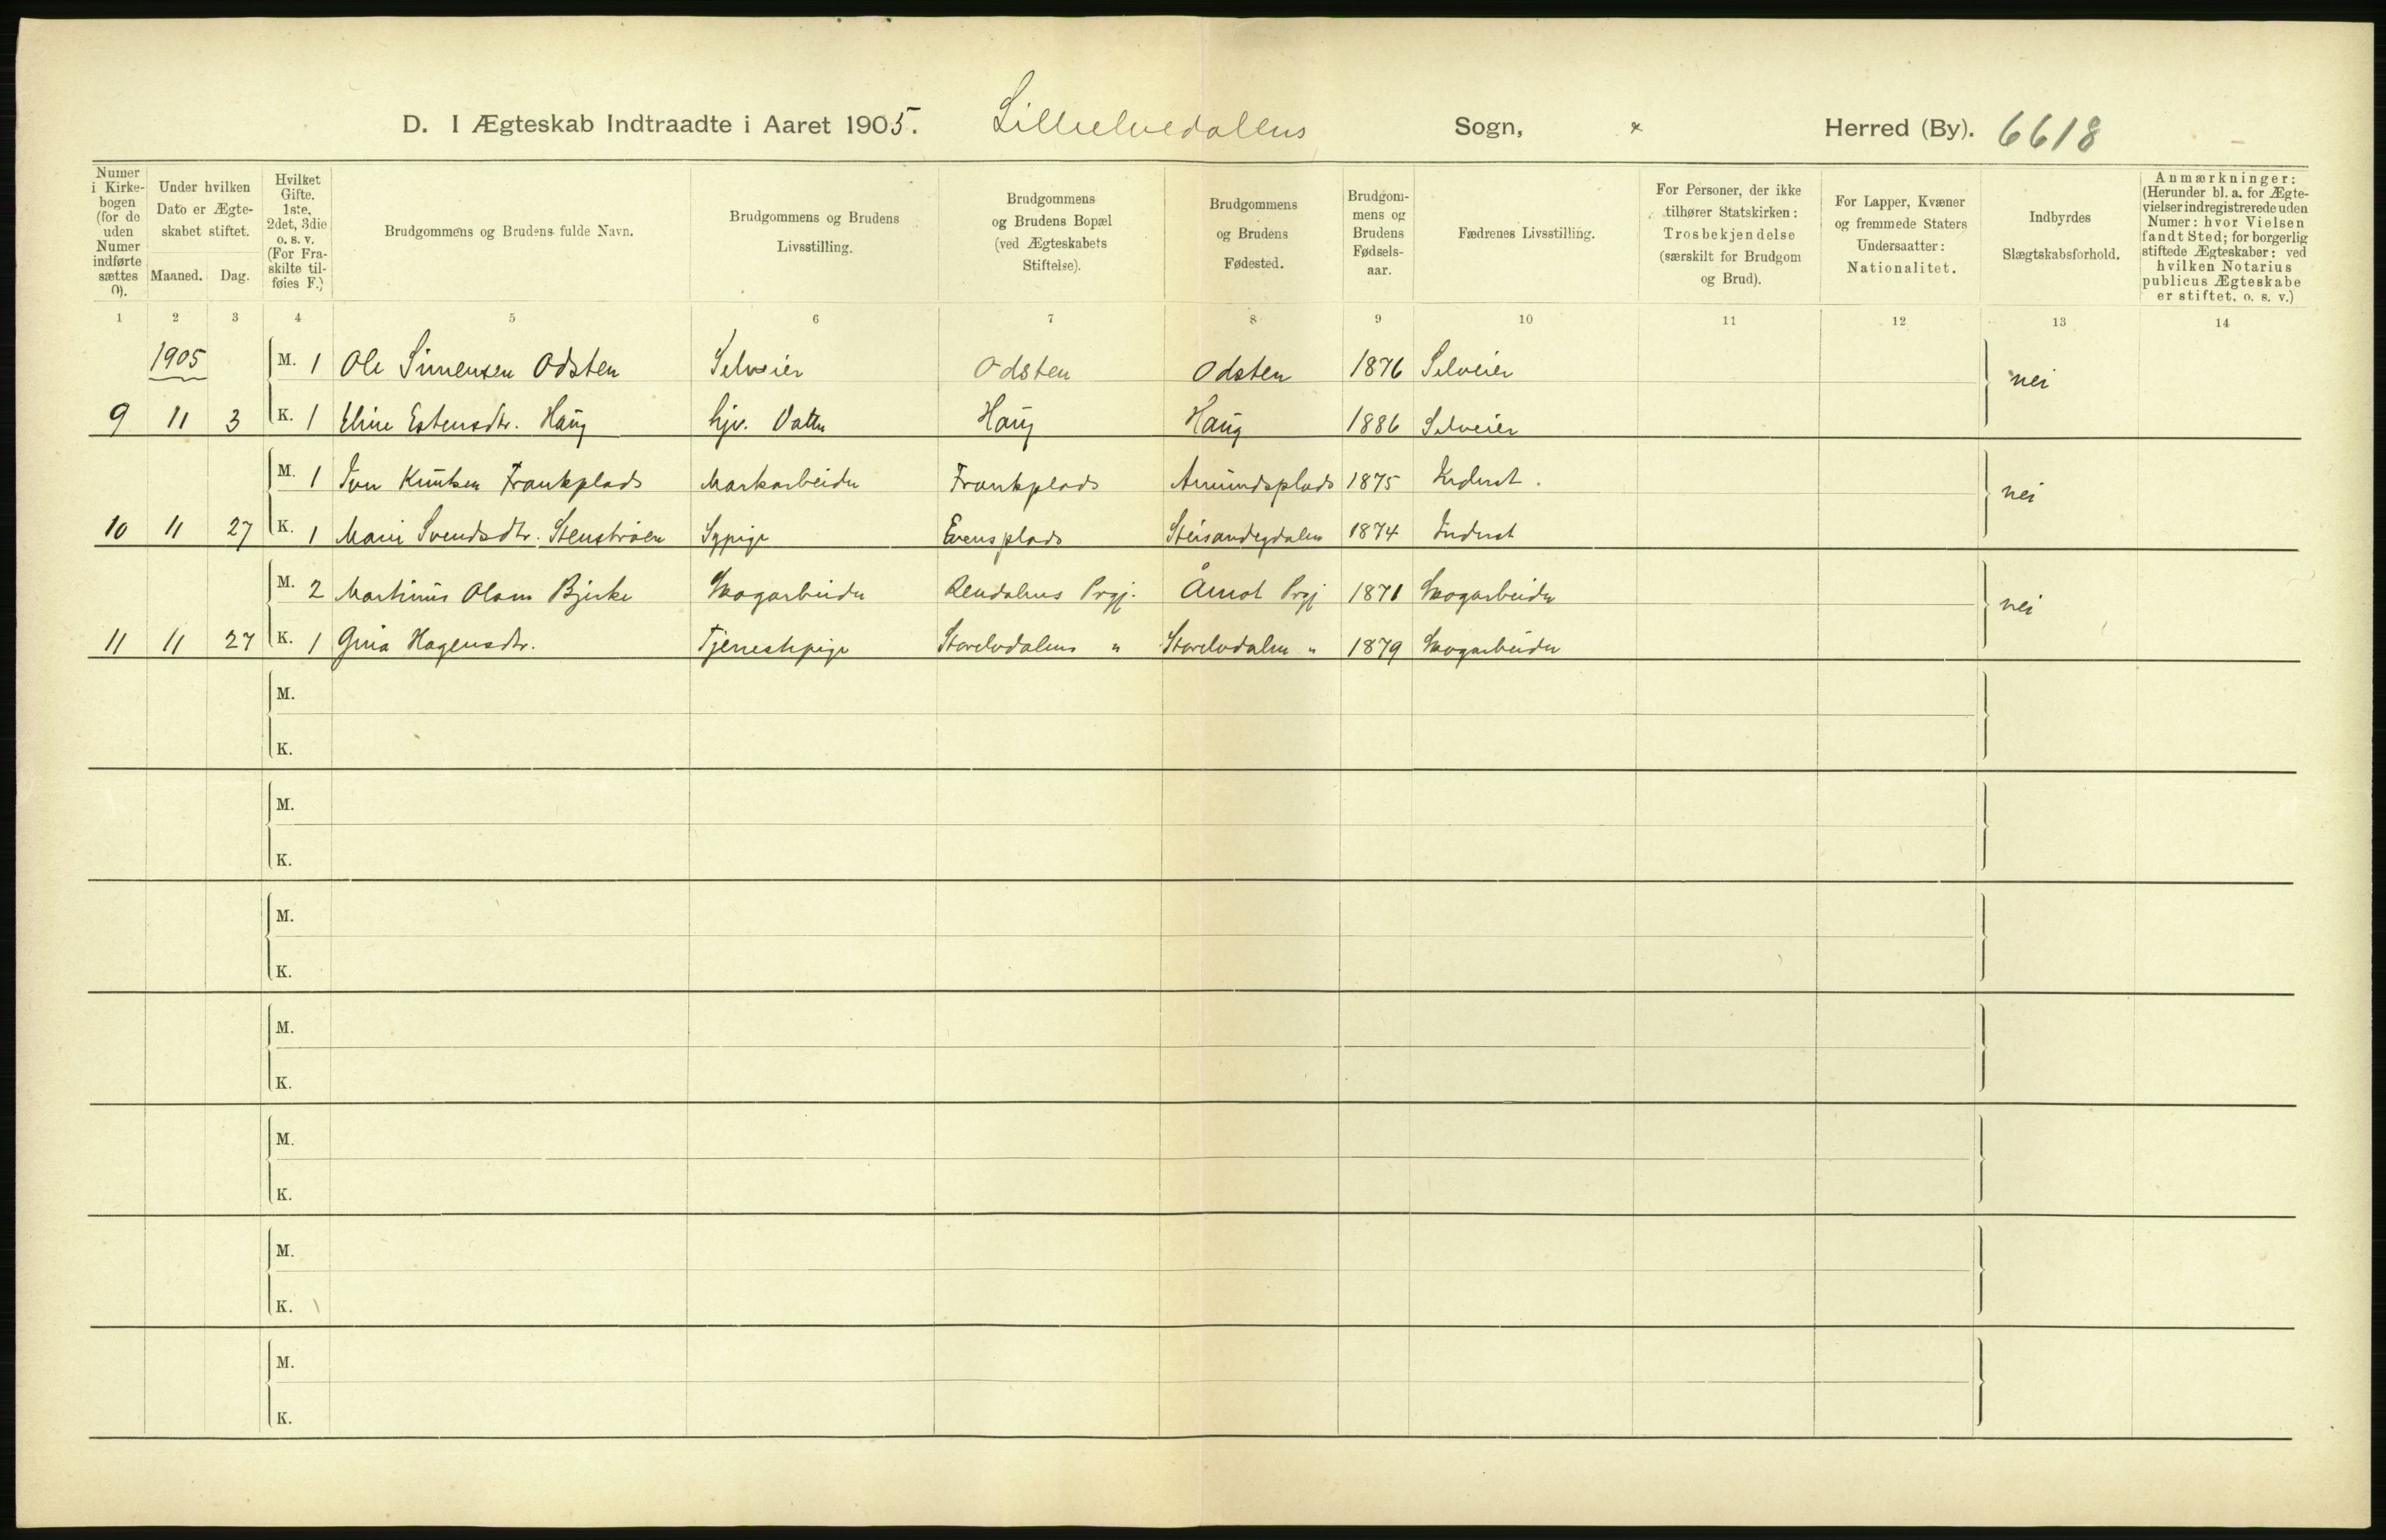 D. I Ægteskab Indtraadte i Aaret 1905. Lilleelvedalens Sogn, " Herred (By). 6618
Numer i Kirkebogen (for de uden Numer indførte sættes 0).
Under hvilken Dato er Ægteskabet stiftet.
Maaned. Dag.
Hvilket Gifte. 1ste, 2det, 3die o. s. v. (For Fraskilte tilføies F.)
Brudgommens og Brudens fulde Navn.
Brudgommens og Brudens Livsstilling.
Brudgommens og Brudens Bopæl (ved Ægteskabets Stiftelse).
Brudgommens og Brudens Fødested.
Brudgommens og Brudens Fødselsaar.
Fædrenes Livsstilling.
For Personer, der ikke tilhører Statskirken: Trosbekjendelse (særskilt for Brudgom og Brud).
For Lapper, Kvæner og fremmede Staters Undersaatter: Nationalitet.
Indbyrdes Slægtskabsforhold.
Anmærkninger: (Herunder bl. a. for Ægtevielser indregistrerede uden Numer: hvor Vielsen fandt Sted; for borgerlig stiftede Ægteskaber: ved hvilken Notarius publicus Ægteskabe er stiftet, o. s. v.)
1 2 3 4 5 6 7 8 9 10 11 12 13 14
1905 M. 1 Ole Simensen Odsten Selveier Odsten Odsten 1876 Selveier nei
9 11 3 K. 1 Eline Estensdtr. Haug hjv. Datter Haug Haug 1886 Selveier
M. 1 Iver Knutsen Frankplads Markarbeider Frankplads Amundsplads 1875 Inderst. nei
10 11 27 K. 1 Marie Svendsdtr. Stenstrøen Sypige Evensplads 1874 Inderst
M. 2 Martinus Olsen Bjerke Skogarbeider Rendalens Prgj. Åmot Prgj 1871 Skogarbeider nei
11 11 27 K. 1 Gina Hagensdtr. Tjenestepige Storelvdalens " Storelvdalen " 1879 Skogarbeider
M.
K.
M.
K.
M.
K.
M.
K.
M.
K.
M.
K.
M.
K.